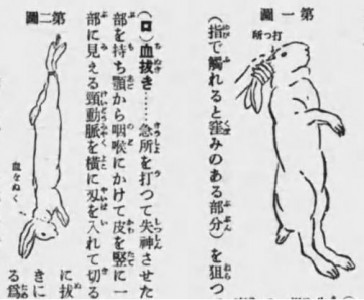 第一圖
打つ所
(指で觸れると窪みのある部分)を狙つ
(ロ)血拔き……急所を打つて失神させた
部を持ち顎から咽喉にかけて皮を竪に一
部に見える頸動脈を橫に刄を入れて切る
第二圖
血をぬく
に拔
きに
る爲